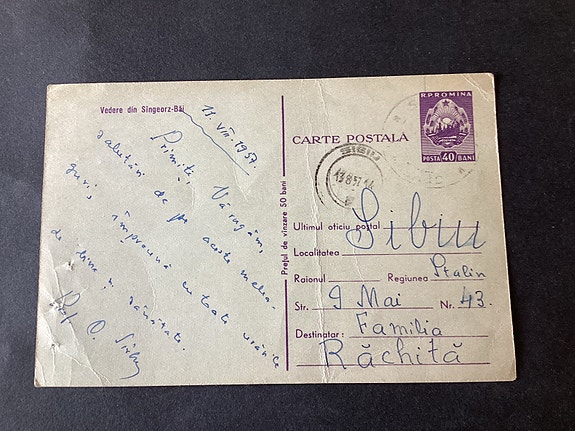 Vedere din Sîngeorz-Băi
11 VIII. 1957.
Primiți, Vă rugăm,
salutări de pe aceste melea-
guri, împreună cu toate urările
de bine și sănătate.
Prof. O.
Prețul de vînzare 50 bani
R.P. ROMINA
POSTA 40 BANI
CARTE POSTALĂ
SIBIU
13 8 57
Ultimul oficiu poștal Sibiu
Localitatea
Raionul Regiunea Stalin
Str. 9 Mai Nr. 43.
Destinatar: Familia
Răchită